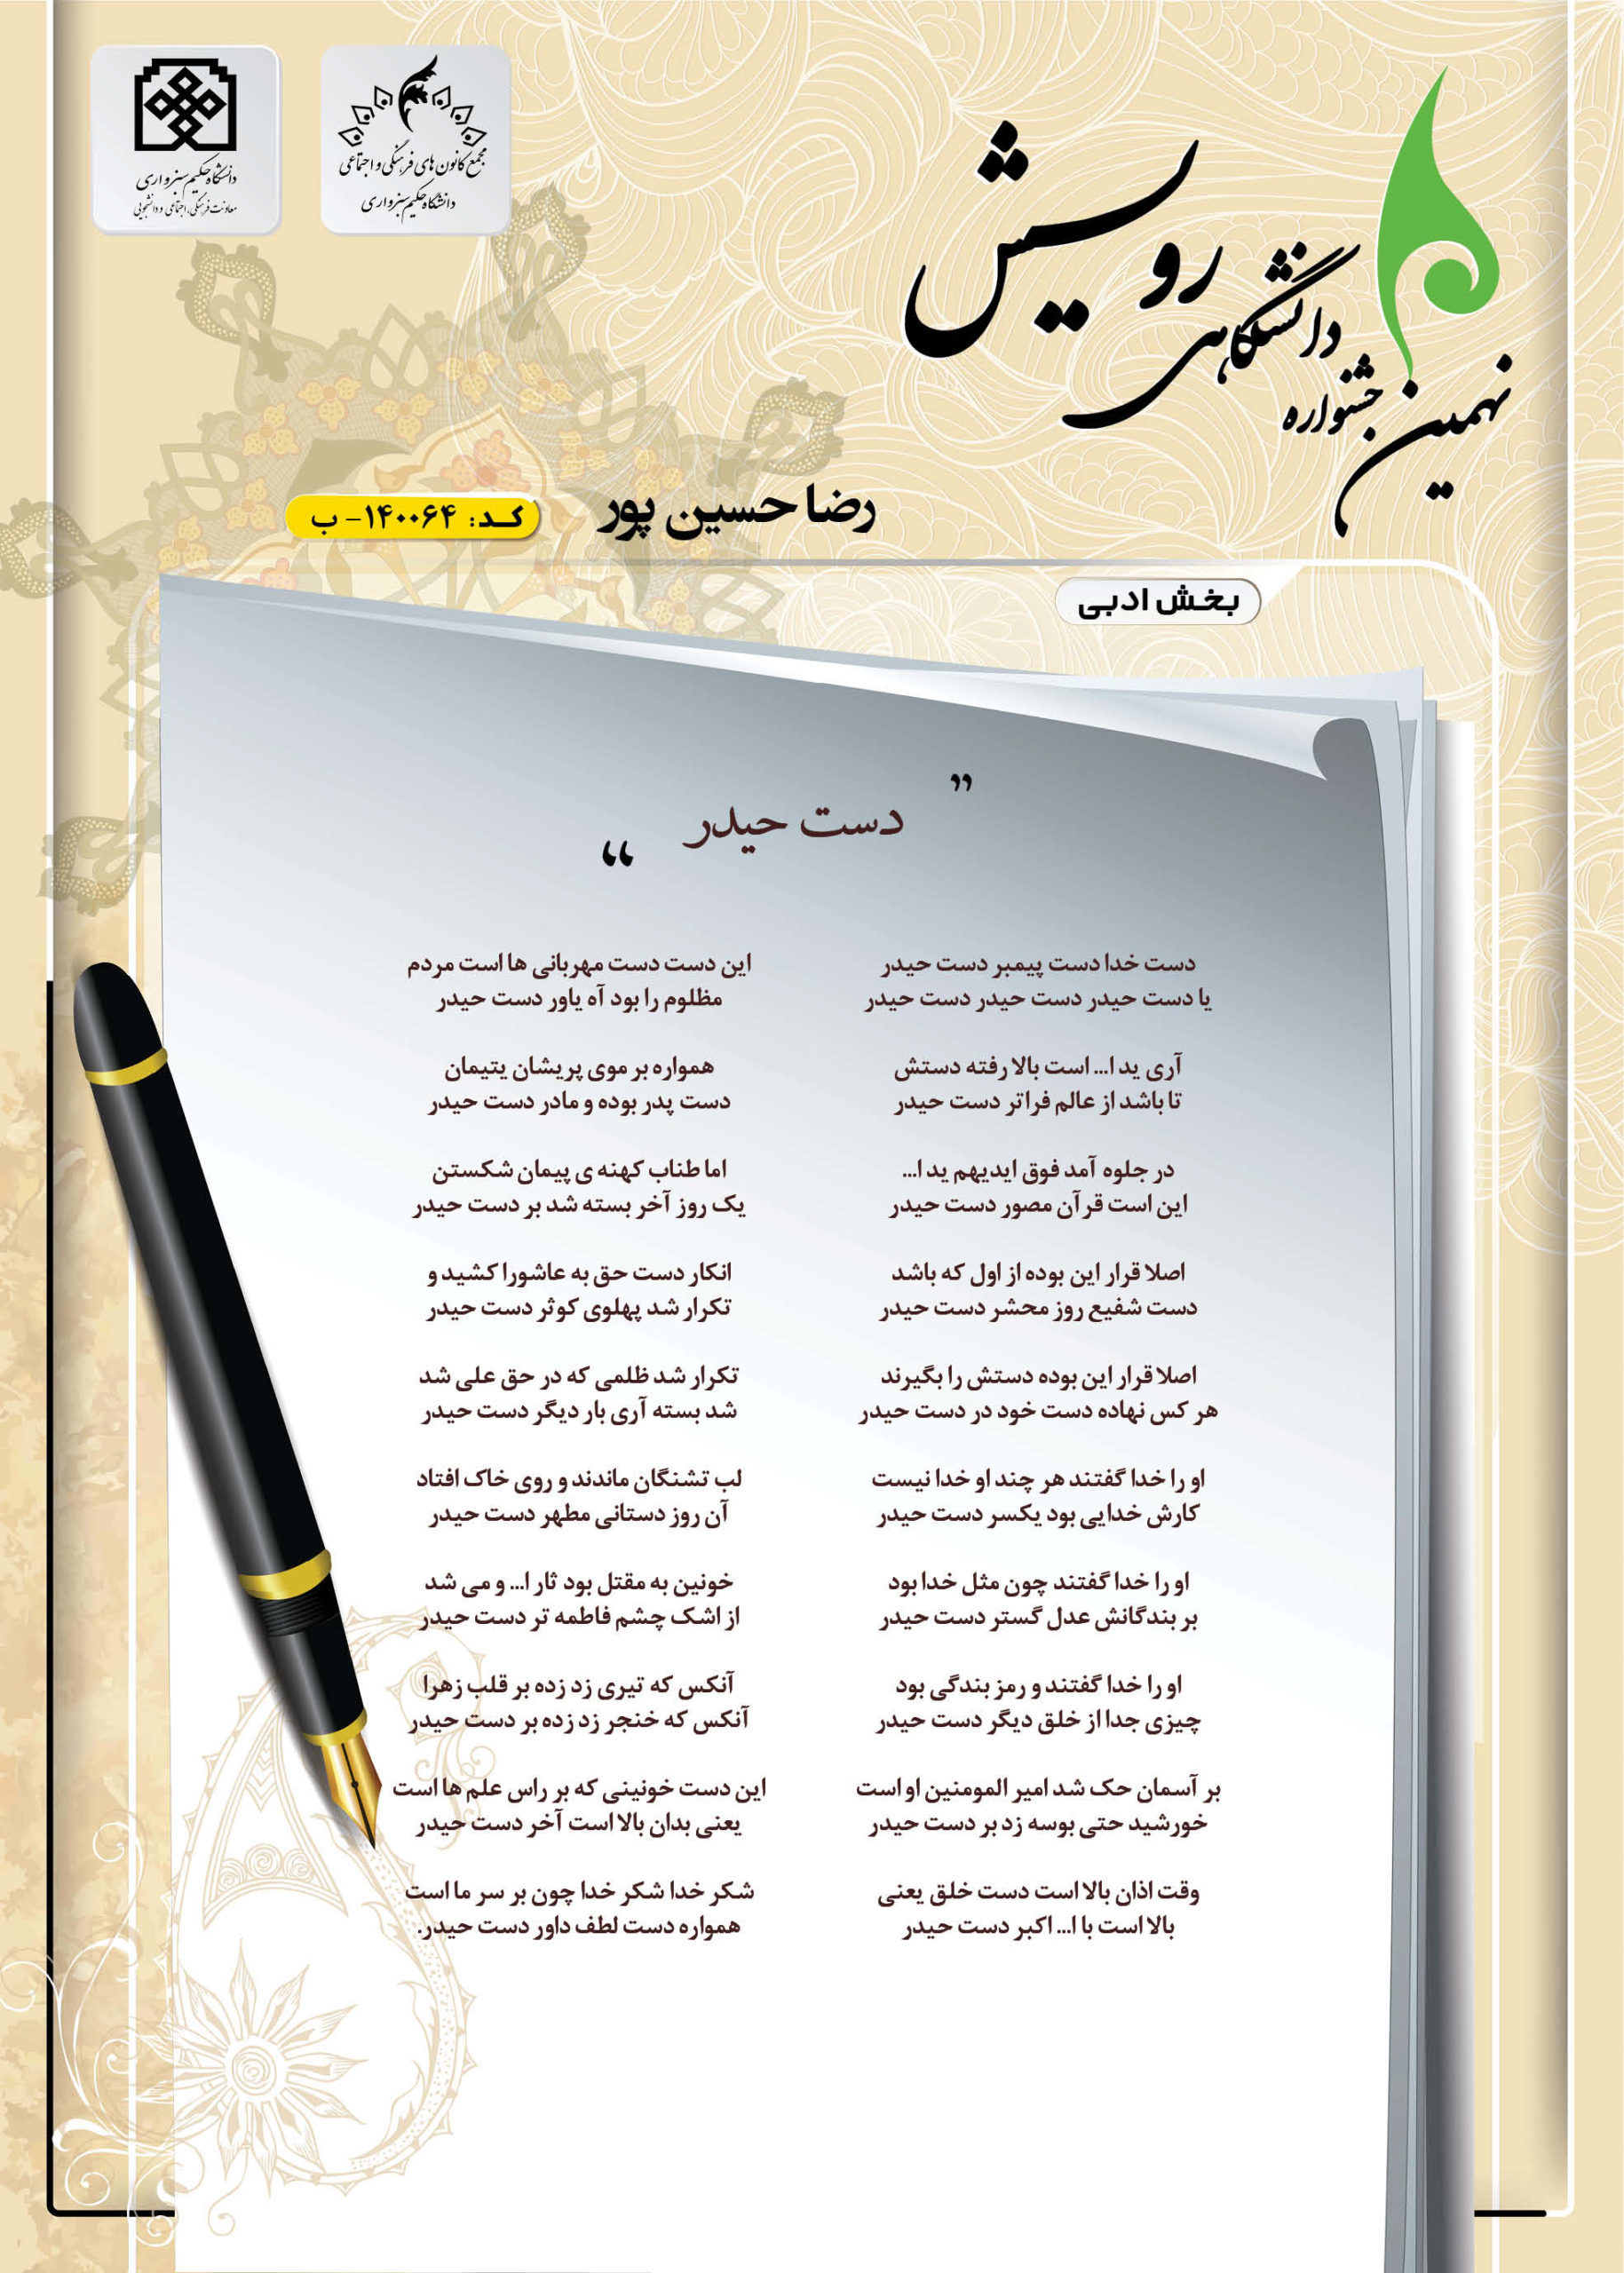 نهمین جشنواره دانشگاهی رویش
مجمع کانون های فرهنگی و اجتماعی
دانشگاه حکیم سبزواری
دانشگاه حکیم سبزواری
معاونت فرهنگی، اجتماعی و دانشجویی
رضا حسین پور
کد: ۱۴۰۰۶۴- ب
بخش ادبی
” دست حیدر “
دست خدا دست پیمبر دست حیدر
یا دست حیدر دست حیدر دست حیدر
آری ید ا... است بالا رفته دستش
تا باشد از عالم فراتر دست حیدر
در جلوه آمد فوق ایدیهم ید ا...
این است قرآن مصور دست حیدر
اصلا قرار این بوده از اول که باشد
دست شفیع روز محشر دست حیدر
اصلا قرار این بوده دستش را بگیرند
هر کس نهاده دست خود در دست حیدر
او را خدا گفتند هر چند او خدا نیست
کارش خدایی بود یکسر دست حیدر
او را خدا گفتند چون مثل خدا بود
بر بندگانش عدل گستر دست حیدر
او را خدا گفتند و رمز بندگی بود
چیزی جدا از خلق دیگر دست حیدر
بر آسمان حک شد امیر المومنین او است
خورشید حتی بوسه زد بر دست حیدر
وقت اذان بالا است دست خلق یعنی
بالا است با ا... اکبر دست حیدر
این دست دست مهربانی ها است مردم
مظلوم را بود آه یاور دست حیدر
همواره بر موی پریشان یتیمان
دست پدر بوده و مادر دست حیدر
اما طناب کهنه ی پیمان شکستن
یک روز آخر بسته شد بر دست حیدر
انکار دست حق به عاشورا کشید و
تکرار شد پهلوی کوثر دست حیدر
تکرار شد ظلمی که در حق علی شد
شد بسته آری بار دیگر دست حیدر
لب تشنگان ماندند و روی خاک افتاد
آن روز دستانی مطهر دست حیدر
خونین به مقتل بود ثار ا... و می شد
از اشک چشم فاطمه تر دست حیدر
آنکس که تیری زد زده بر قلب زهرا
آنکس که خنجر زد زده بر دست حیدر
این دست خونینی که بر راس علم ها است
یعنی بدان بالا است آخر دست حیدر
شکر خدا شکر خدا چون بر سر ما است
همواره دست لطف داور دست حیدر.